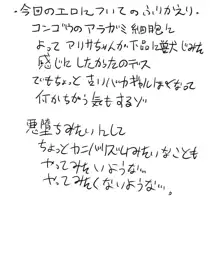 ・今回のエロについてのふりかえり・
コンゴウのアラガミ細胞に
よってアリサちゃんが下品に獣じみた
感じにしたかったのデス
でもちょっと 古いバカギャルぽくなって
何かちがう気もするゾ
悪堕ちみたいにして
ちょっとカニバリズムみたいなことも
やってみたいような…
やってみたくないような…。